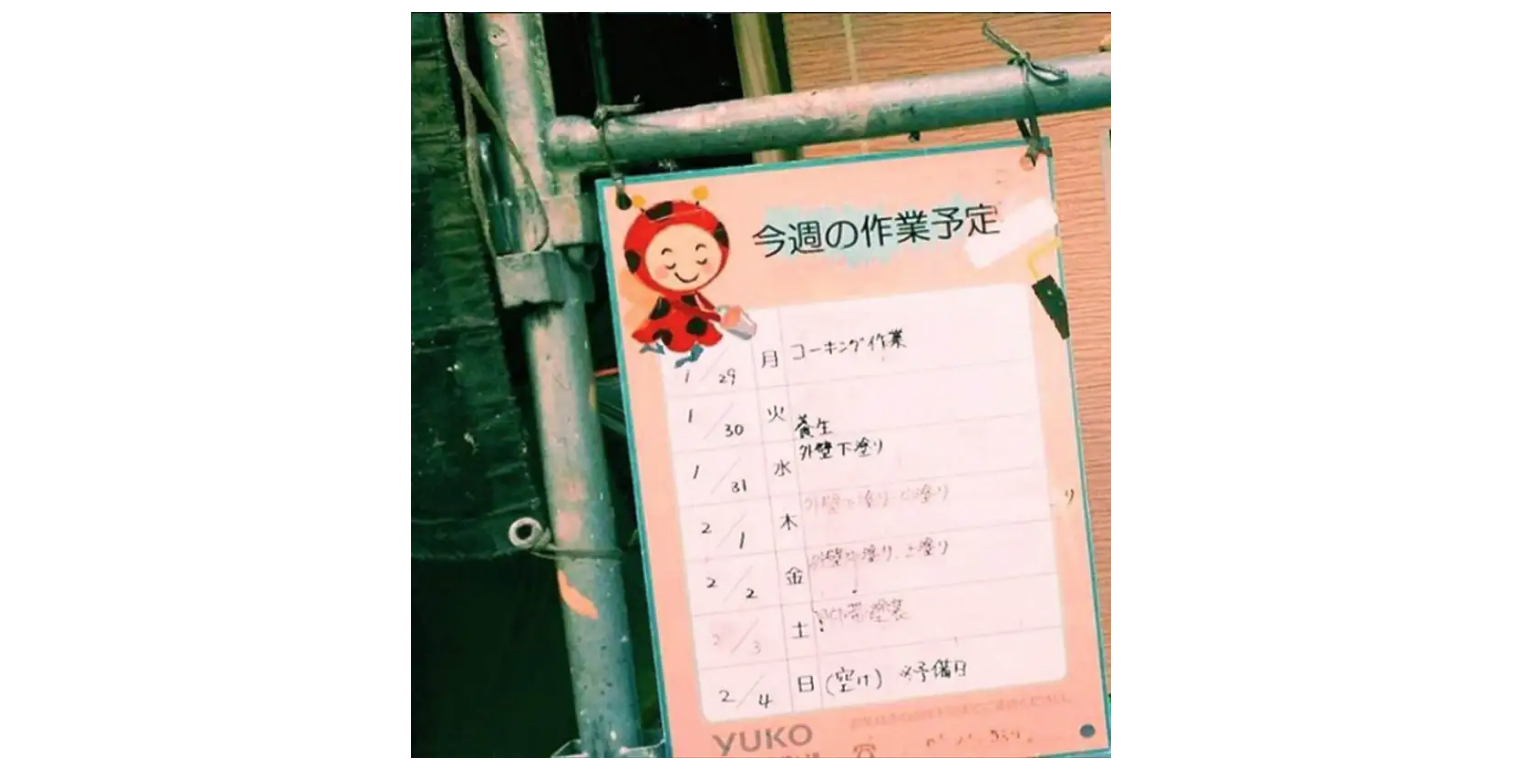 今週の作業予定
1/29 月 コーキング作業
1/30 火 養生
1/31 水 外壁下塗り
2/1 木 外壁下塗り 中塗り
2/2 金 外壁中塗り、上塗り
2/3 土 付帯塗装
2/4 日 (空け) ※予備日
YUKO